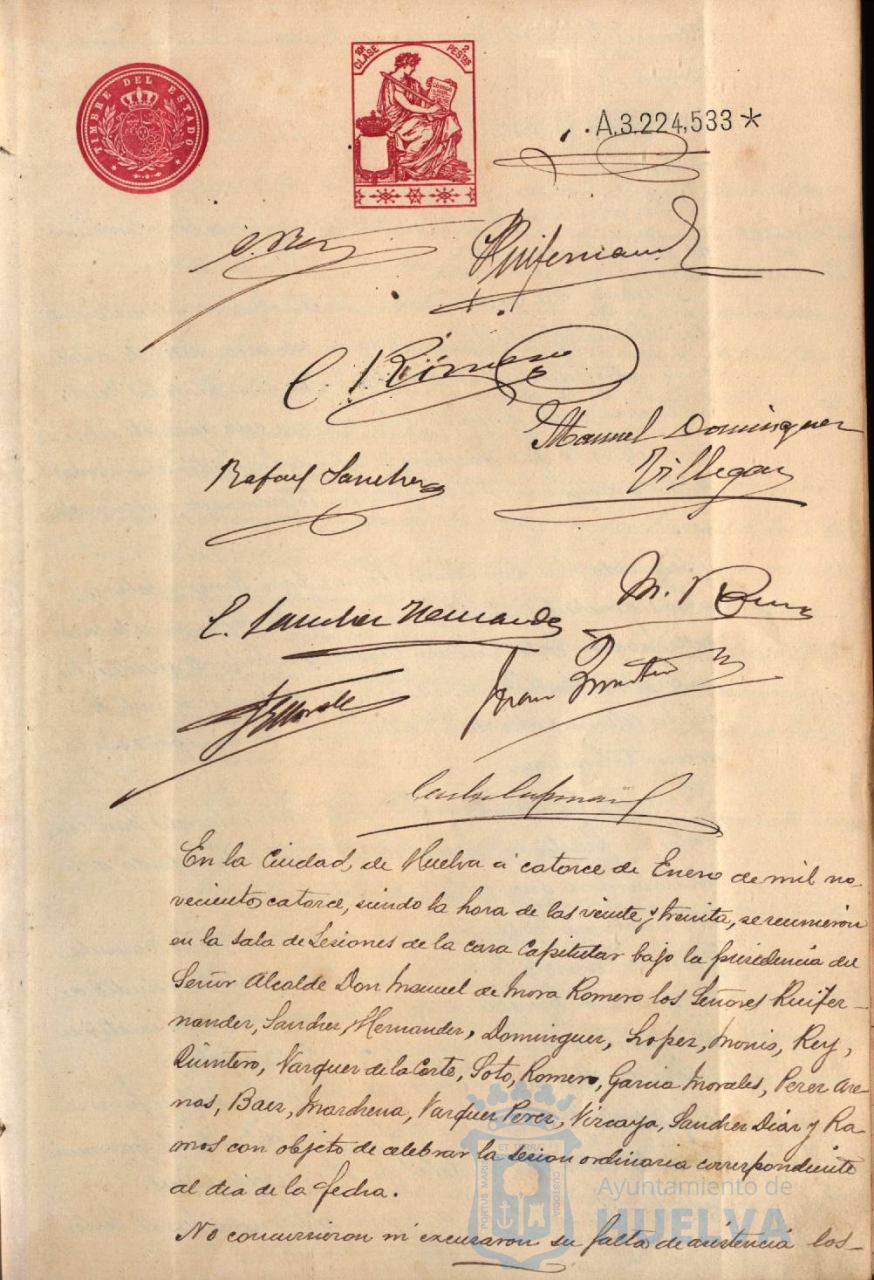 TIMBRE DEL ESTADO
10ª CLASE 2 PESTAS
A.3.224,533*
Ruifernand
C. Romero
Manuel Dominguez
Villegas
Rafael Sanchez
M. R
C. Sanchez Hernandez
Juan Quintero
En la Ciudad de Huelva á catorce de Enero de mil no-
veciento catorce, siendo la hora de las veinte y treinta, se reunieron
en la sala de Sesiones de la casa Capitular bajo la presidencia del
Señor Alcalde Don Manuel de Mora Romero los Señores Ruifer-
nandez, Sanchez Hernandez, Dominguez, Lopez, Monis, Rey,
Quintero, Vazquez de la Corte, Soto, Romero, Garcia Morales, Perez Are-
nas, Baez, Marchena, Vazquez Perez, Vizcaya, Sanchez Diaz y Ra-
mos con objeto de celebrar la sesion ordinaria correspondiente
al dia de la fecha.
No concurrieron ni excusaron su falta de asistencia los-
PORTUS MARIS ET TERRÆ CUSTODIA
Ayuntamiento de
HUELVA